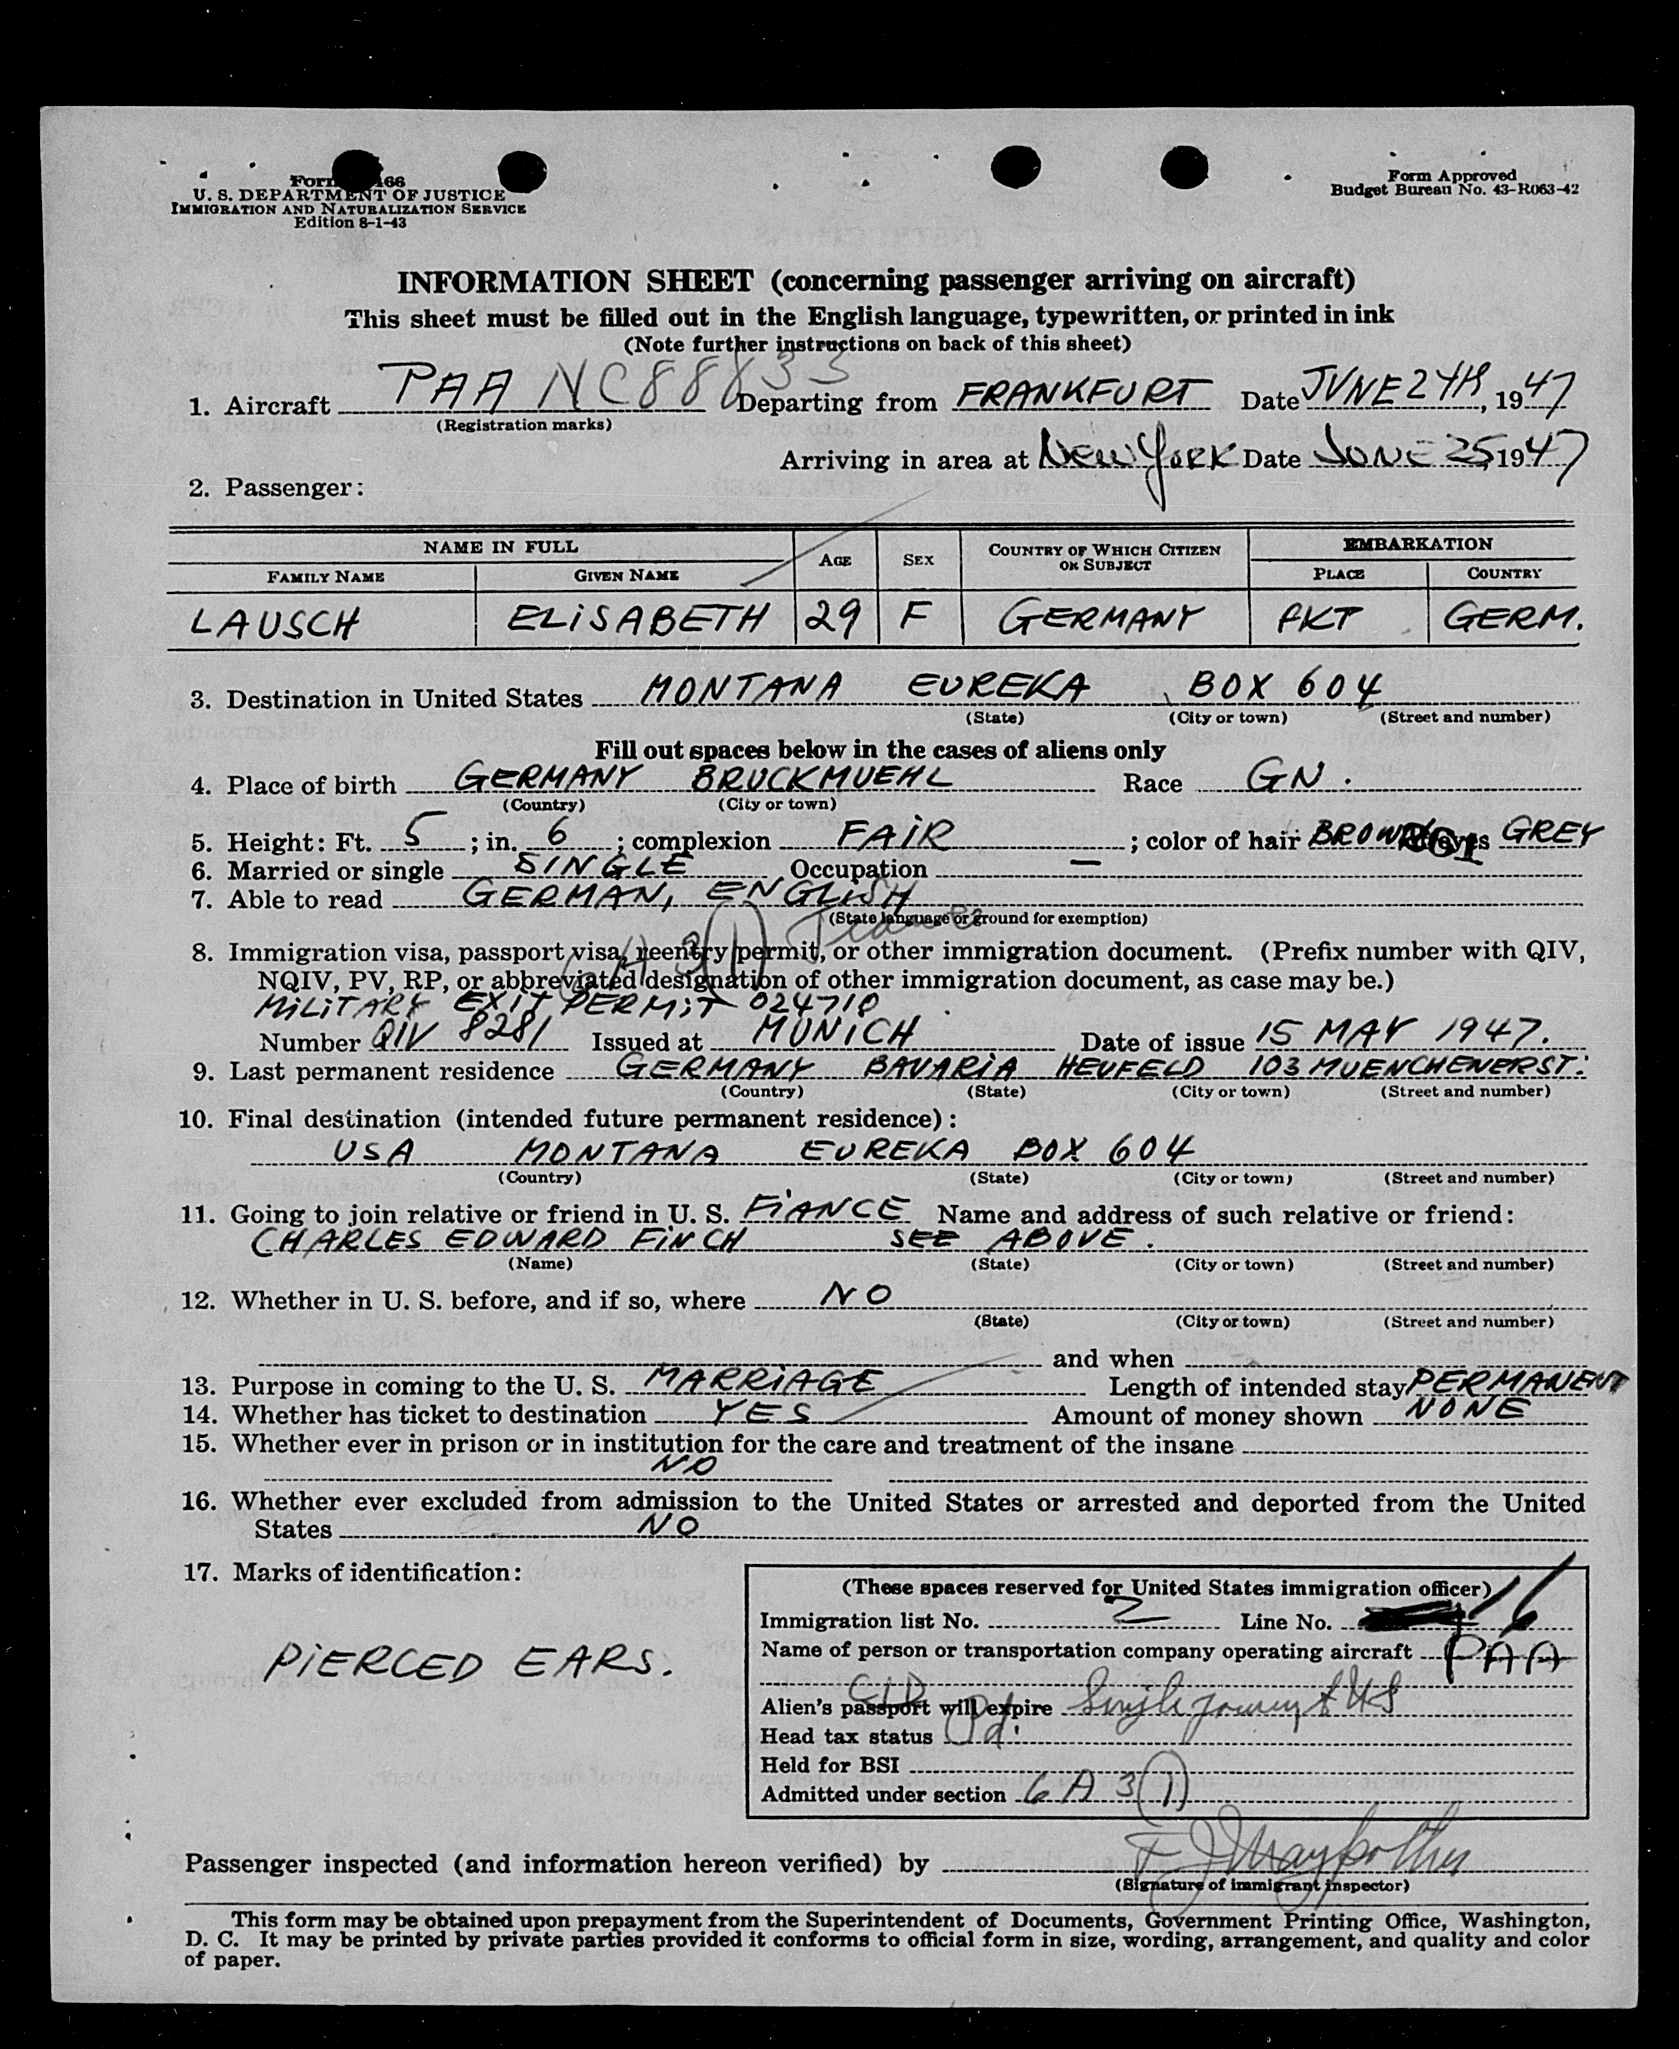 Form 466
U. S. DEPARTMENT OF JUSTICE
IMMIGRATION AND NATURALIZATION SERVICE
Edition 8-1-43
Form Approved
Budget Bureau No. 43-R063-42
INFORMATION SHEET (concerning passenger arriving on aircraft)
This sheet must be filled out in the English language, typewritten, or printed in ink
(Note further instructions on back of this sheet)
1. Aircraft PAA NC88833 Departing from FRANKFURT Date JUNE 24TH, 1947
(Registration marks)
Arriving in area at NEW YORK Date JUNE 25, 1947
2. Passenger:
NAME IN FULL AGE SEX COUNTRY OF WHICH CITIZEN OR SUBJECT EMBARKATION
FAMILY NAME GIVEN NAME PLACE COUNTRY
LAUSCH ELISABETH 29 F GERMANY FKT GERM.
3. Destination in United States MONTANA EUREKA BOX 604
(State) (City or town) (Street and number)
Fill out spaces below in the cases of aliens only
4. Place of birth GERMANY BRUCKMUEHL Race GN.
(Country) (City or town)
5. Height: Ft. 5; in. 6; complexion FAIR; color of hair BROWN eyes GREY
6. Married or single SINGLE Occupation —
7. Able to read GERMAN, ENGLISH
(State language or ground for exemption)
8. Immigration visa, passport visa, reentry permit, or other immigration document. (Prefix number with QIV,
NQIV, PV, RP, or abbreviated designation of other immigration document, as case may be.)
6A 3(1)
MILITARY EXIT PERMIT 024718
Number QIV 8281 Issued at MUNICH Date of issue 15 MAY 1947.
9. Last permanent residence GERMANY BAVARIA HEUFELD 103 MUENCHENERST.
(Country) (State) (City or town) (Street and number)
10. Final destination (intended future permanent residence):
USA MONTANA EUREKA BOX 604
(Country) (State) (City or town) (Street and number)
11. Going to join relative or friend in U. S. FIANCE Name and address of such relative or friend:
CHARLES EDWARD FINCH SEE ABOVE.
(Name) (State) (City or town) (Street and number)
12. Whether in U. S. before, and if so, where NO
(State) (City or town) (Street and number)
and when
13. Purpose in coming to the U. S. MARRIAGE Length of intended stay PERMANENT
14. Whether has ticket to destination YES Amount of money shown NONE
15. Whether ever in prison or in institution for the care and treatment of the insane
NO
16. Whether ever excluded from admission to the United States or arrested and deported from the United
States NO
17. Marks of identification:
PIERCED EARS.
(These spaces reserved for United States immigration officer)
Immigration list No. 2 Line No. 16
Name of person or transportation company operating aircraft PAA
Alien's passport will expire Single journey to US
Head tax status Pd.
Held for BSI
Admitted under section 6A 3(1)
Passenger inspected (and information hereon verified) by
(Signature of immigrant inspector)
This form may be obtained upon prepayment from the Superintendent of Documents, Government Printing Office, Washington,
D. C. It may be printed by private parties provided it conforms to official form in size, wording, arrangement, and quality and color
of paper.